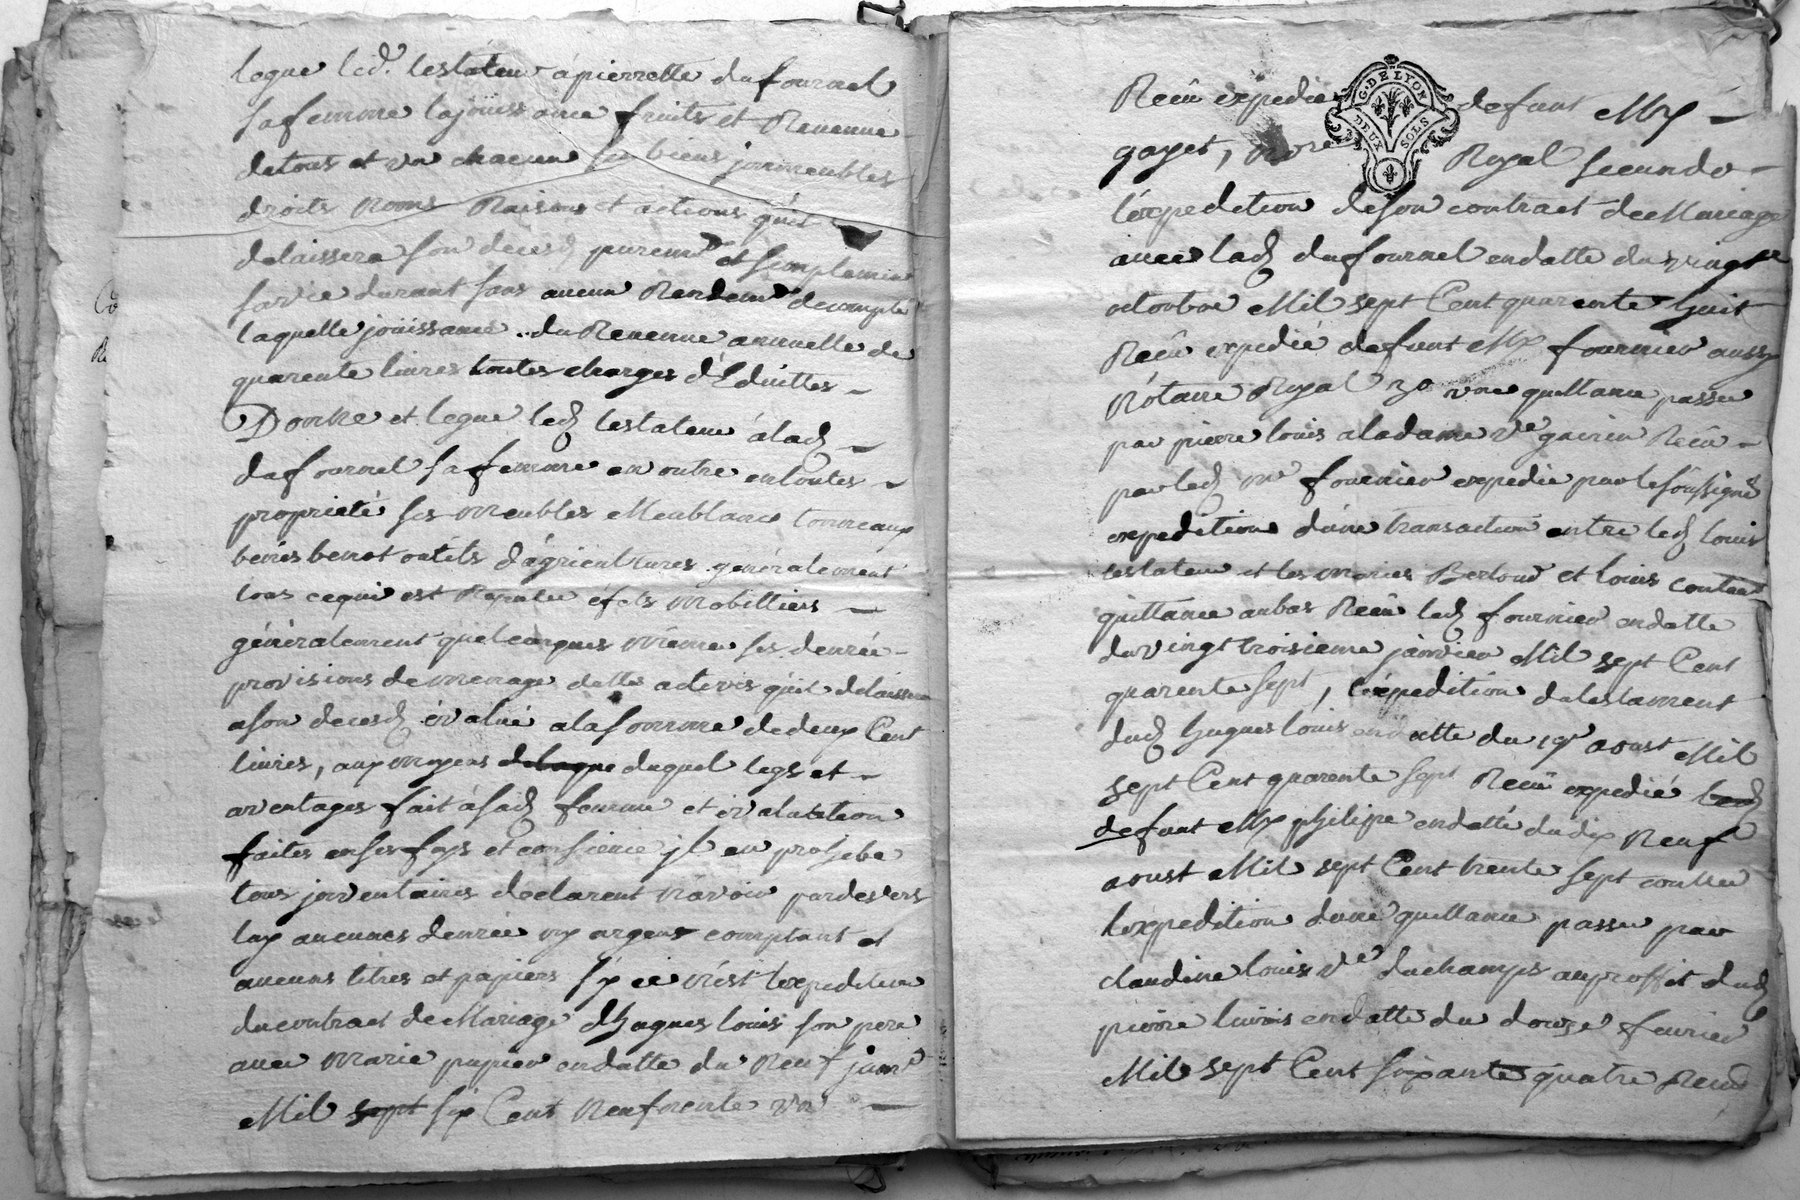 legue led. testateur a pierrette dufournel
sa femme la jouissance fruits et Revenue
de tous et un chacun ses biens jmmeubles
droits noms Raisons et actions qu'il
delaissera son deced purem et simplemen
sa vie durant sans aucun Rendem de compte
laquelle joüissance du Revenue annuelle de
quarente livres toutes charges déduittes
Donne et legue led testateur á lad
dufournel sa femme en outre en toutes
propriété ses meubles Meublant tonneaux
benes benot outils d'agricultures generalement
tous ce qui est Reputer éfets mobilliers
généralement quelconques même ses denrée
provisions de menage dette actives qu'il delaissera
a son deced évalué a la somme de deux Cent
livres, aux moyens duquel legs et
aventages fait á sad femme et évaluation
faites en ses foys et consience jl en prohebe
tous jnventaires declarent n'avoir par devers
luy aucunes denrée ny argent comptant et
aucuns titres et papiers sy ce n'est l'expedition
du contract de Mariage d'hugues louis son pere
avec marie papier en datte du neuf janv
Mil sept six Cent nonante un
Reçu expedié defunt Mx
gayet, nore Royal secundo
l'expedition de son contract de Mariage
avec lad dufournel en datte du vingt
octobre Mil sept Cent quarente huit
Reçu expedié defunt Mx fournier aussy
Nótaire Royal 3o une quittance passée
par pierre louis a la dame ve guerin Reçu
par led me fournier expedié par le soussigné
expedition d'une transaction entre led louis
testateur et les maries Berloud et louis contenant
quittance au bas Reçu led fournier en datte
du vingt troisieme janvier Mil sept Cent
quarente sept, l'expedition du testament
dud hugues louis en datte du 19 aoust Mil
sept Cent quarente sept Reçu expedié
defunt Mx philipe en datté du dix neuf
aoust Mil sept Cent trente sept
l'expedition d'une quittance passée par
claudine louis ve duchamps au proffit dud
pierre louis en datte du douze fevrier
Mil sept Cent soixante quatre Reçu
G. DE LYON
DEUX SOLS